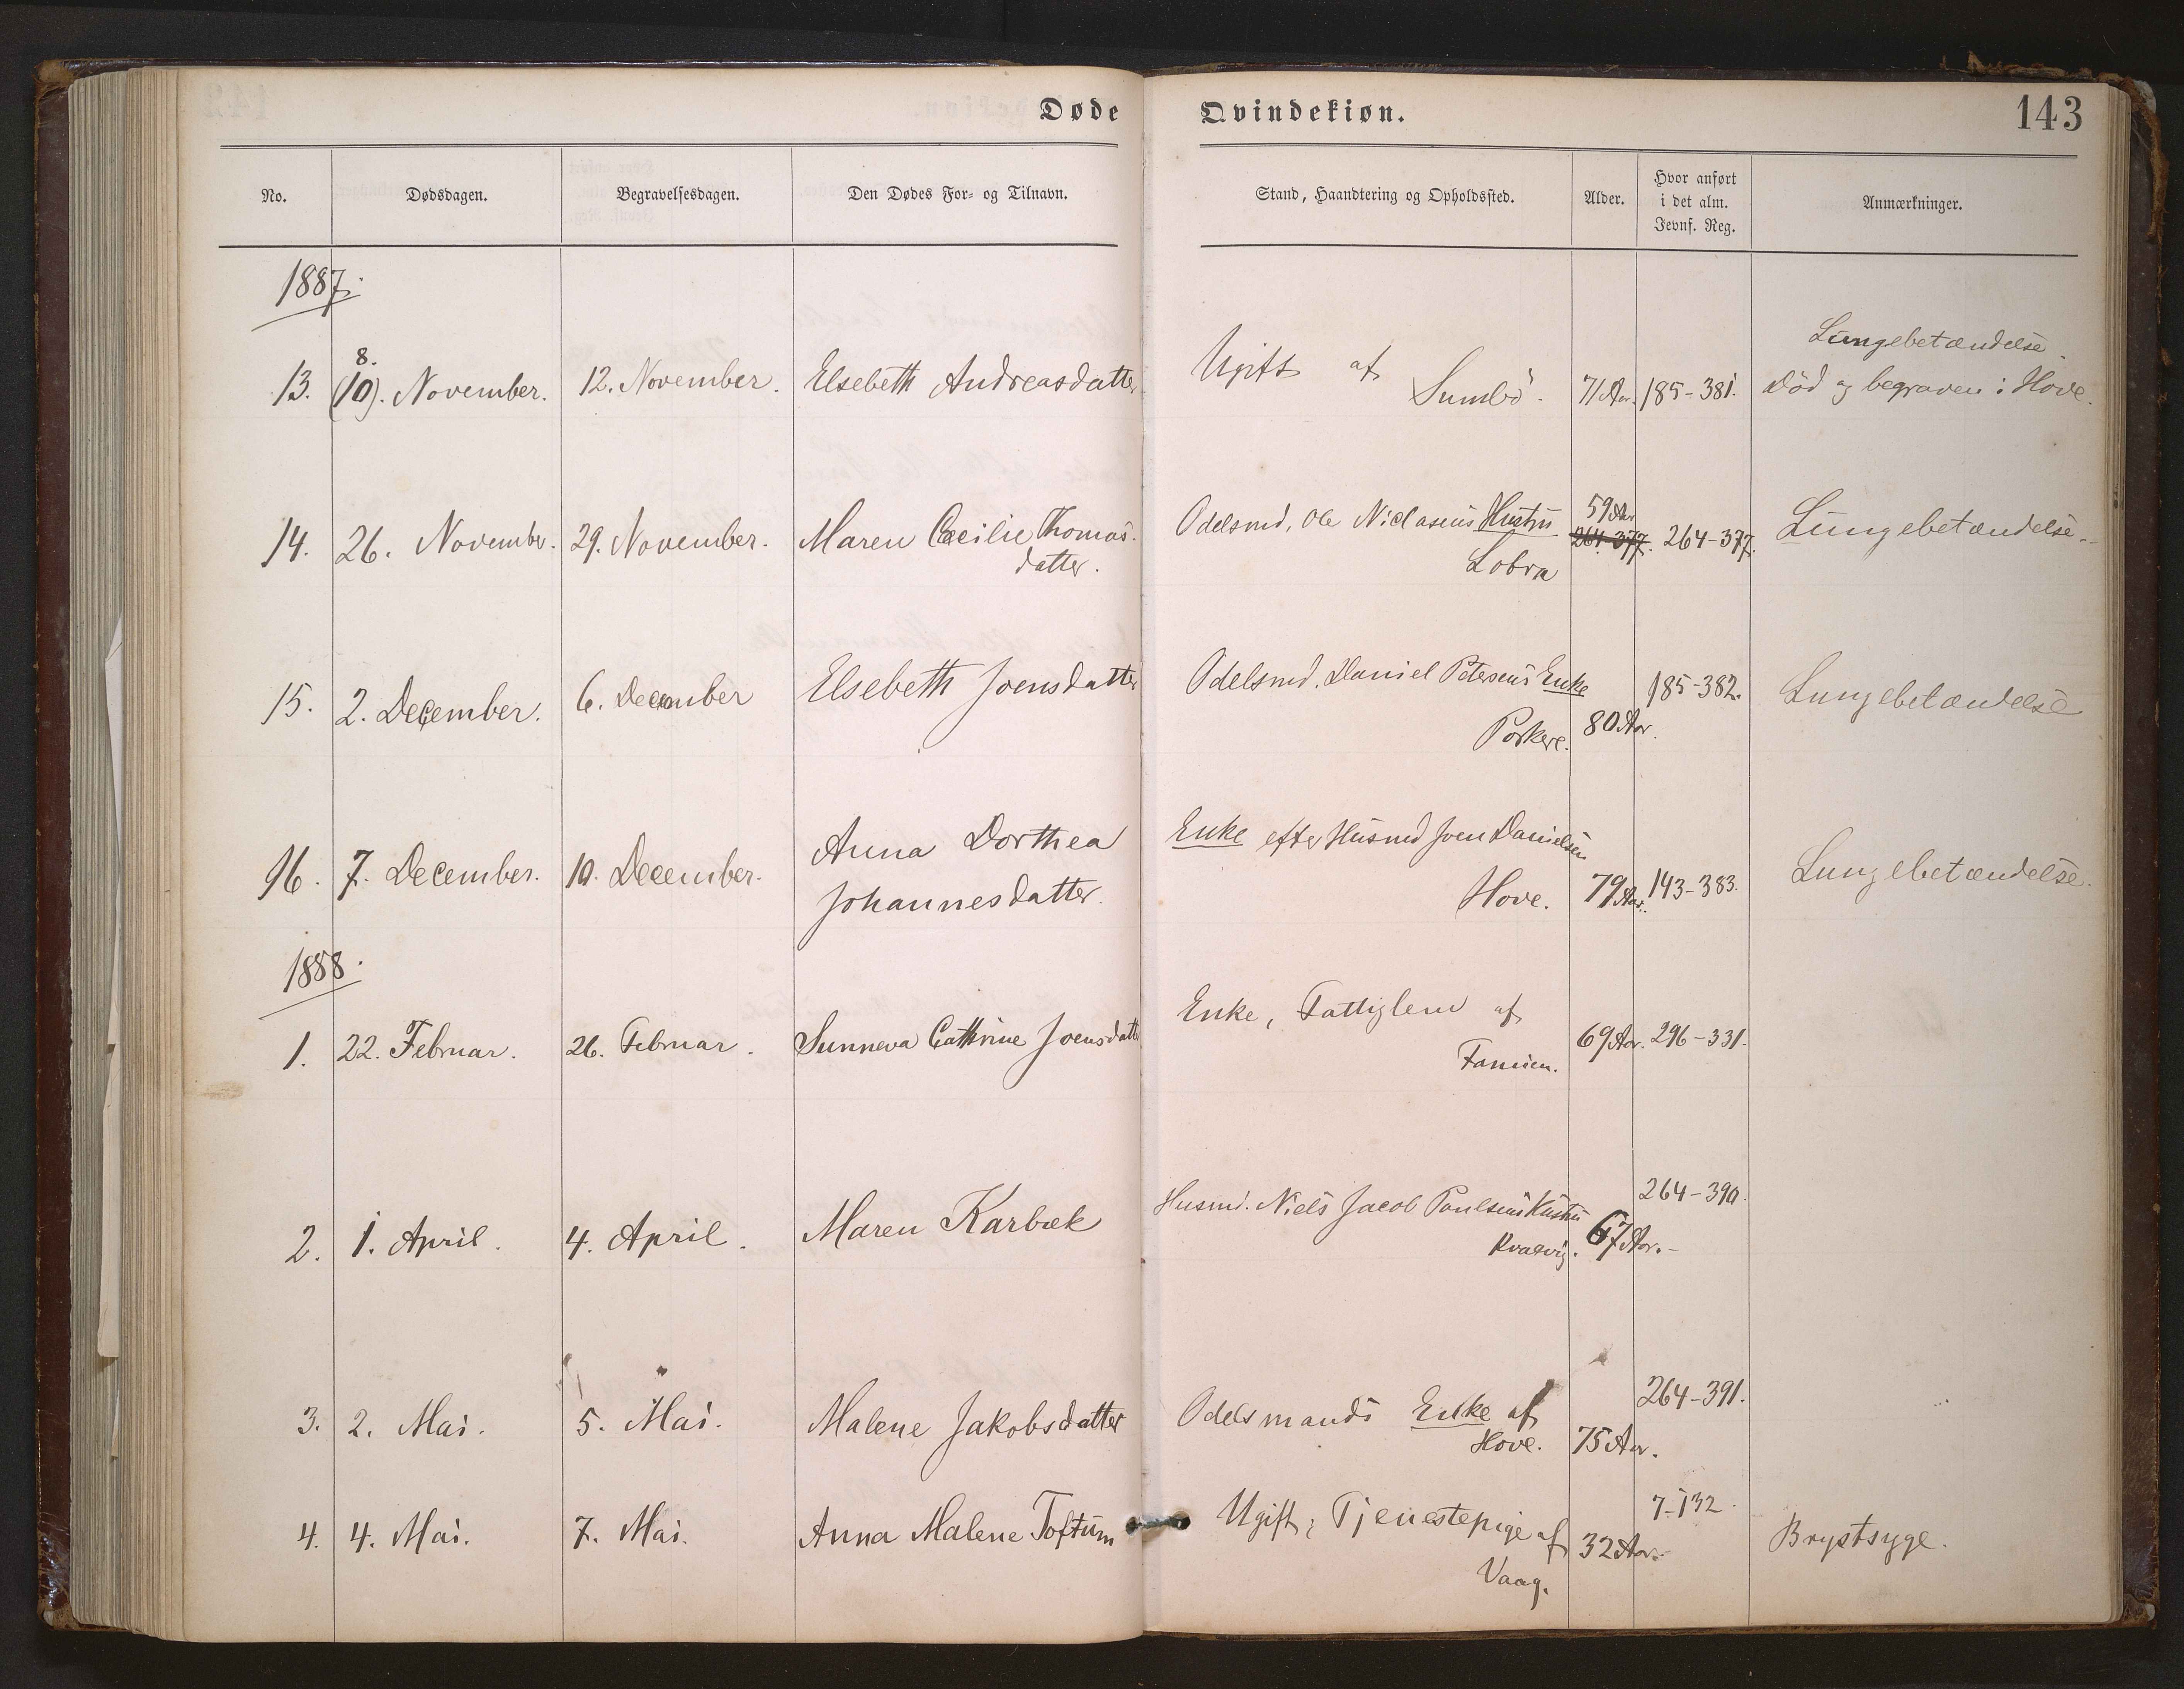 Døde Qvindekiøn. 143
No. Dødsdagen. Begravelsesdagen. Den Dødes For- og Tilnavn. Stand, Haandtering og Opholdssted. Alder. Hvor anført i det alm. Jevnf. Reg. Anmærkninger.
1887.
13. 8. (10). November. 12. November. Elsebeth Andreasdatter Ugift af Sumbö. 71 Aar. 185-381. Lungebetændelse. Död og begraven i Hove.
14. 26. November. 29. November. Maren Cecilie Thomas. datter. Odelsmd. Ole Niclasens Hustru Lobra 59 Aar 264-377. 264-377. Lungebetændelse.
15. 2. December. 6. December Elsebeth Joensdatter Odelsmd. Daniel Petersens Enke Porkere. 80 Aar. 185-382. Lungebetændelse
16. 7. December. 10. December. Anna Dorthea Johannesdatter. Enke efter Husmd Joen Danielsen Hove. 79 Aar. 143-383. Lungebetændelse.
1888.
1. 22. Februar. 26. Februar. Sunneva Cathrine Joensdatter Enke, Fattiglem af Famien. 69 Aar. 296-331.
2. 1. April. 4. April. Maren Karbæk Husmd. Niels Jacob Poulsens Hustru Kvalvig. 67 Aar. 264-390.
3. 2. Mai. 5. Mai. Malene Jakobsdatter Odelsmands Enke af Hove. 75 Aar. 264-391.
4. 4. Mai. 7. Mai. Anna Malene Toftum Ugift, Tjenestepige af Vaag. 32 Aar. 7-132. Brystsyge.